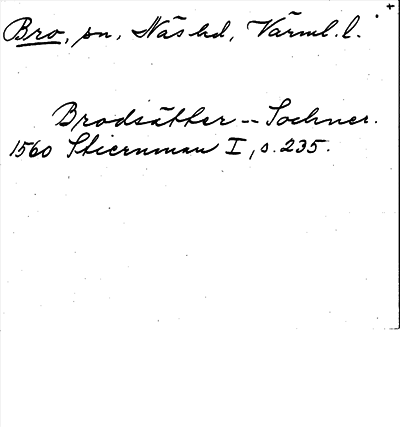 Bro, sn, Näs hd, Värml. l. +
Brodsätther -- Sochner.
1560 Stiernman I, s. 235.